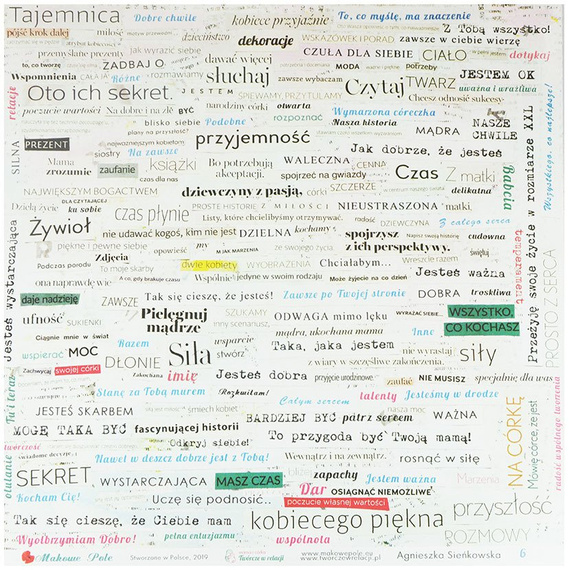 Tajemnica Dobre chwile kobiece przyjaźnie To, co myślę, ma znaczenie
pójść krok dalej miłość dzieciństwo dekoracje WSKAZÓWEK I PORAD Z Tobą wszystko!
zawsze w ciebie wierzę
przemyślane prezenty jak wyrazić siebie CZUŁA DLA SIEBIE CIAŁO dotykaj
to, co tworzę ZADBAJ O dawać więcej MODA potrzeby
Wspomnienia CAŁA JA Różne rozmawiamy słuchaj zawsze wybaczam Czytaj TWARZ JESTEM OK
relacje Oto ich sekret. JESTEM ŚPIEWAMY, PRZYTULAMY Chcesz odnosić sukcesy uważna i wrażliwa
poczucie wartości Na dobre i na złe BYĆ narodziny córki otwarta Wymarzona córeczka
blisko siebie Podobne rozpoznać Nasza historia MĄDRA NASZE CHWILE
plany na przyszłość przyjemność
SILNA PREZENT najważniejszym kobietom Jak dobrze, że jesteś
siostry Na zawsze
Mama zrozumienie zaufanie książki Bo potrzebują akceptacji. WALECZNA CENNA
czas dla nas spojrzeć na gwiazdy Czas Z matki Babcia
NAJWIĘKSZYM BOGACTWEM dziewczyny z pasją, córki SZCZERZE delikatna
Dzielą życie DLA CZYTAJĄCEJ ku sobie czas płynie PROSTE HISTORIE Z MIŁOŚCI NIEUSTRASZONA matki,
Listy, które chcielibyśmy otrzymywać. radość DZIEWCZYNA Z całego serca
Żywioł nie udawać kogoś, kim nie jest DZIELNA kochamy spojrzysz z ich perspektywy. Napisz swoją historię cudowna
piękne i pewne siebie opowieść my JA JAK MARZENIA ze swojego życia Wreszcie razem świętuj
Podczas porodu Zdjęcia To moje skarby dwie kobiety WYOBRAŻENIA Chciałabym... temperament
ona naprawdę wie A co, gdy brakuje czasu Wspólnie jedyne w swoim rodzaju. Może żyjecie na co dzień Jesteś ważna
Jesteś wystarczająca
Wszystkiego, co najlepsze!
Przeżyję swoje życie w rozmiarze XXL
PROSTO Z SERCA
daje nadzieję ZAWSZE Tak się cieszę, że jesteś! Zawsze po Twojej stronie DOBRA troskliwa
ufność SUKIENKI Pielęgnuj mądrze SZUKAMY ODWAGA mimo lęku WYRAŻAĆ SIEBIE! WSZYSTKO, CO KOCHASZ
inny scenariusz, mądra, ukochana mamu Inne
Ciągnie mnie w świat Razem wsparcie Taka, jaka jestem nie wyrastaj
wspierać MOC DŁONIE Siła stwórz z wiary w szczęśliwe zakończenia. siły
Zachwycaj swojej córki Zakochana imię Jesteś dobra przyjęcie urodzinowe! zaufać NIE MUSISZ specjalnie dla was
Tu i teraz Stanę za Tobą murem Rozkwitam! talenty Jesteśmy w drodze
JESTEŚ SKARBEM śmiech kobiet Całym sercem nasza moc WAŻNA NA CÓRKĘ
MOGĘ TAKA BYĆ fascynującej historii BARDZIEJ BYĆ patrz sercem Mówię córce, że jest
twórczość Odkryj siebie! To przygoda być Twoją mamą!
otulanie Nawet w deszcz dobrze jest z Tobą! Wewnątrz i na zewnątrz. rosnąć w siłę
radość wspólnego tworzenia
SEKRET WYSTARCZAJĄCA MASZ CZAS zapachy Jestem ważna Marzenia
Kocham Cię! Dar OSIĄGNĄĆ NIEMOŻLIWE
Uczę się podnosić.. poczucie własnej wartości przyszłość
Tak się cieszę, że Ciebie mam kobiecego piękna
Wyolbrzymiam Dobro! pełna entuzjazmu wspólnota ROZMOWY
Makowe Pole Stworzono w Polsce, 2019 Twórcze w relacji www.makowepole.eu www.tworczewrelacji.pl Agnieszka Sieńkowska 6